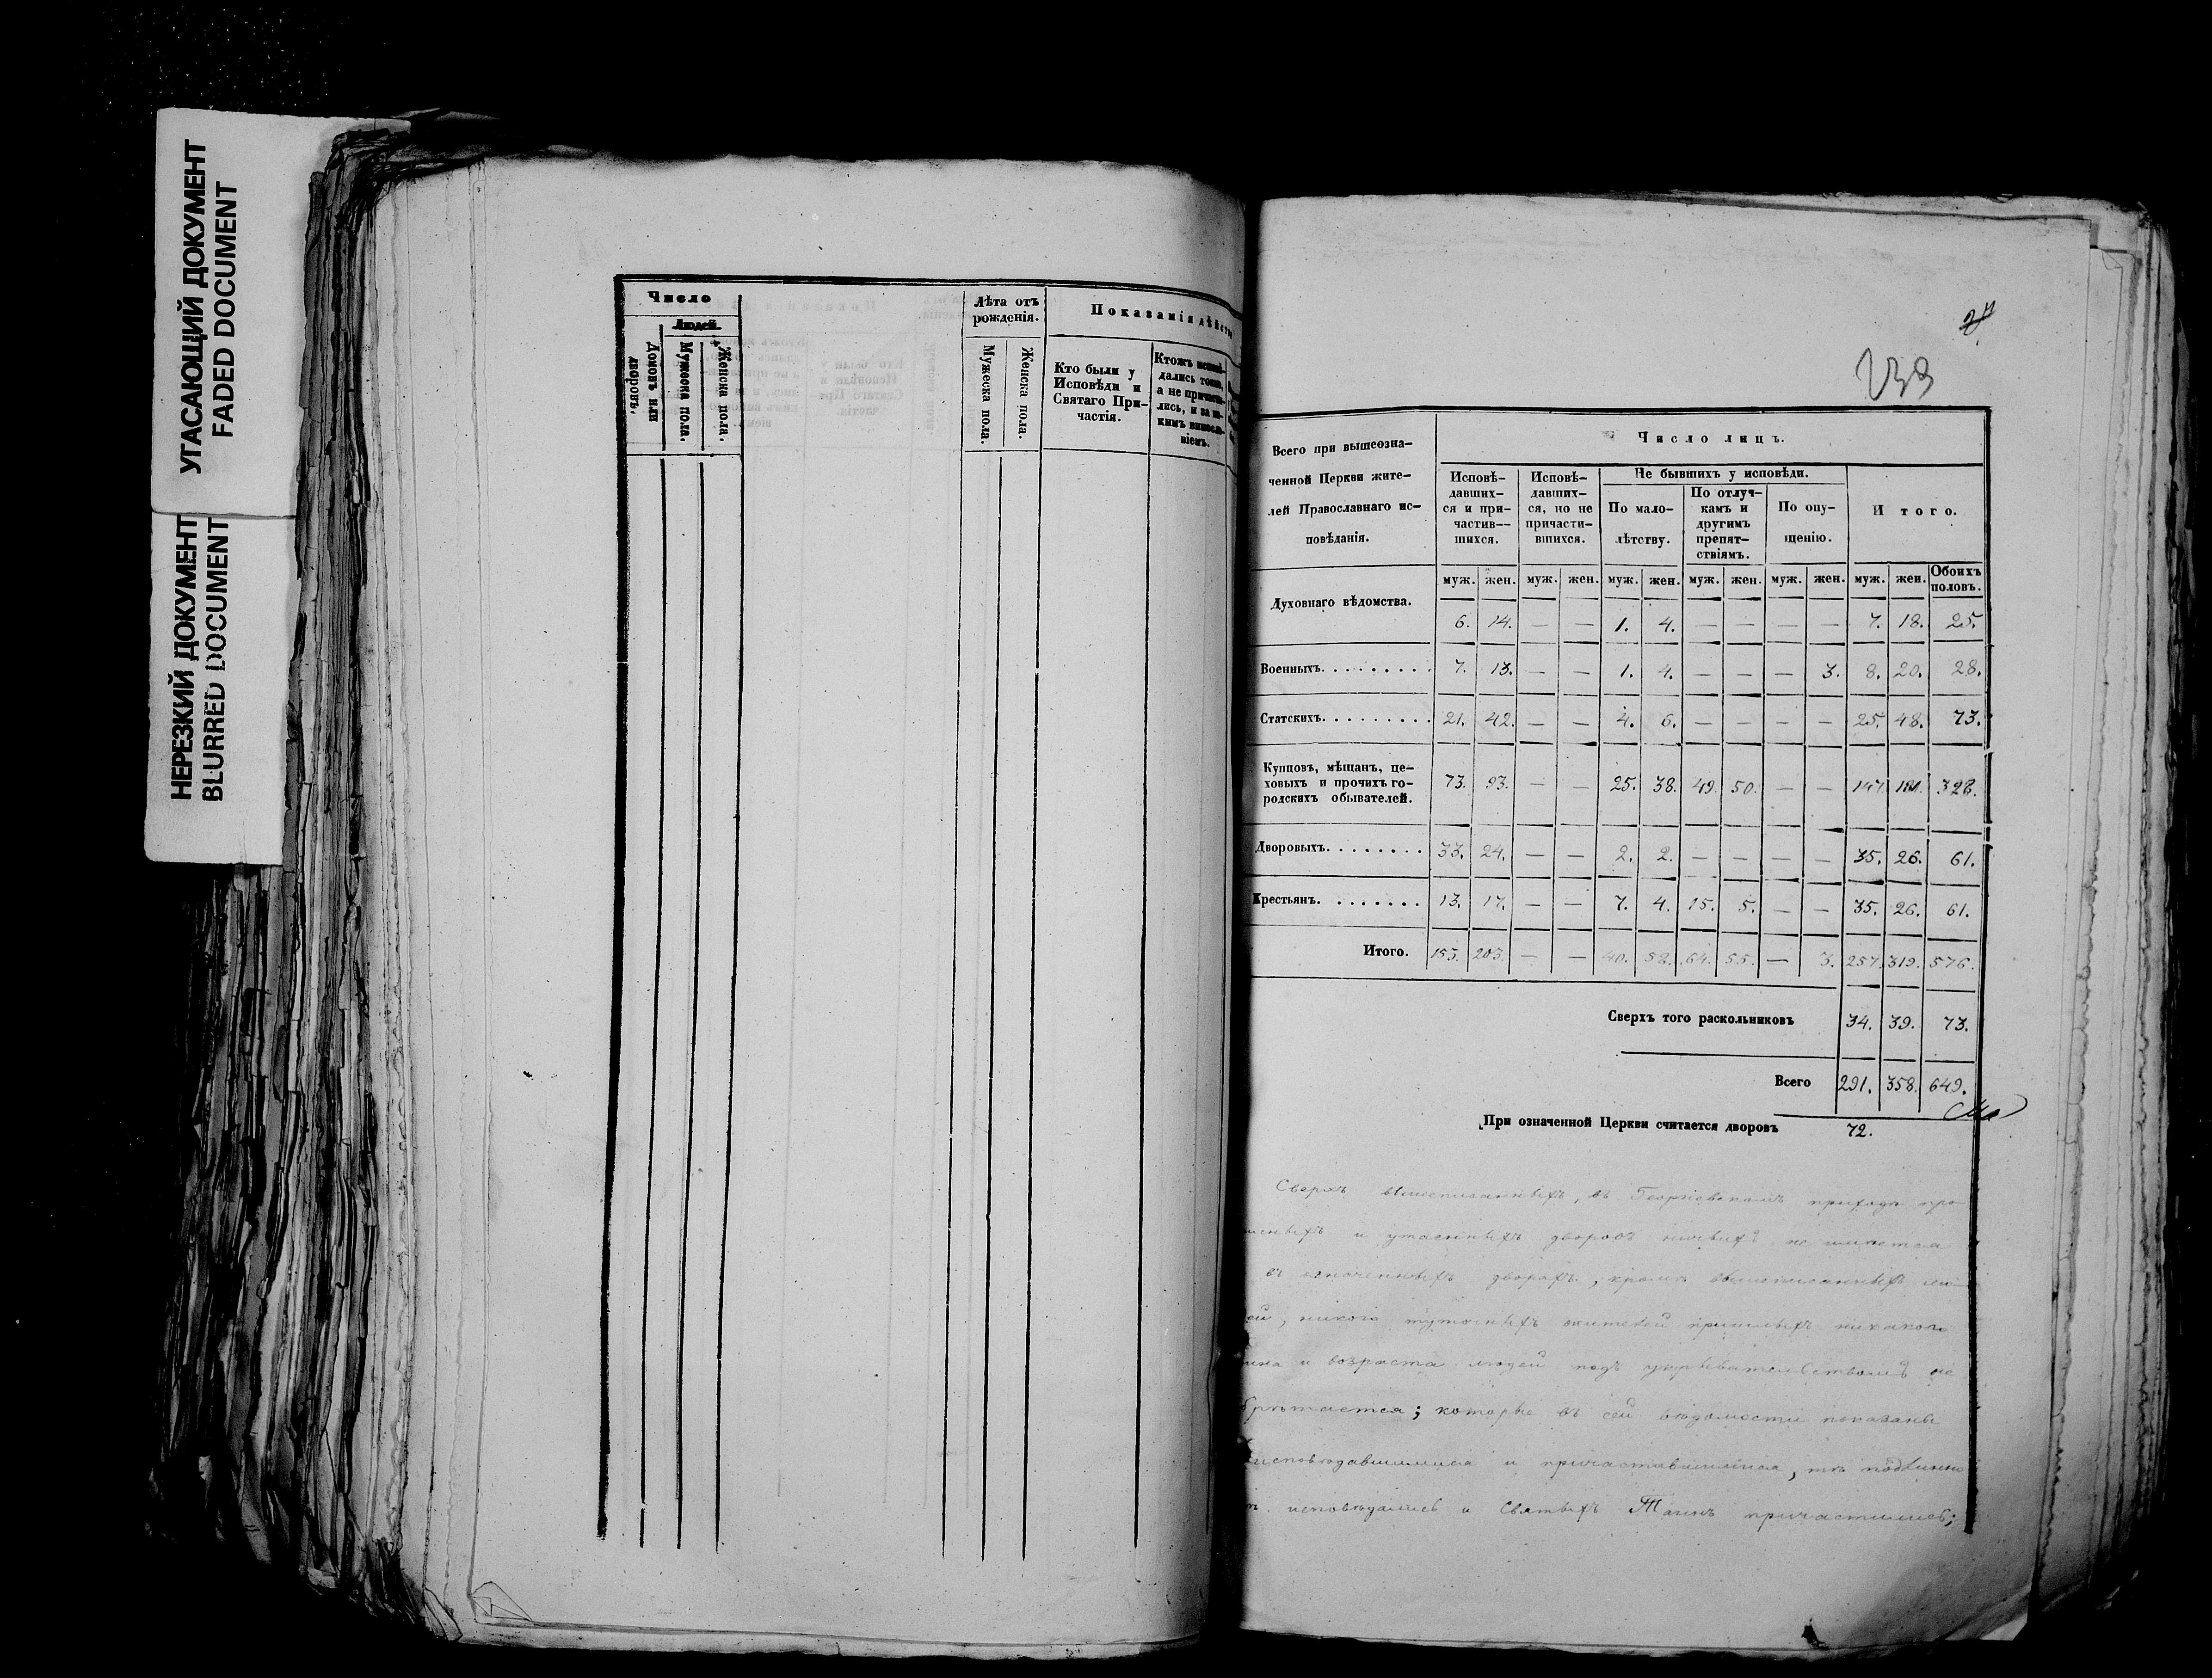 УГАСАЮЩИЙ ДОКУМЕНТ
FADED DOCUMENT
НЕРЕЗКИЙ ДОКУМЕНТ
BLURRED DOCUMENT
Число
Людей.
Домовъ или дворовъ.
Мужеска пола.
Женска пола.
Лѣта отъ рожденія.
Мужеска пола.
Женска пола.
Показанія дѣйств
Кто были у
Исповѣди и
Святаго При-
частія.
Ктожъ исповѣ-
дались токмо,
а не причасти-
лись, и за ка-
кимъ винослу-
віемъ.
24
233
Всего при вышеозна-
ченной Церкви жите-
лей Православнаго ис-
повѣданія.
Число лицъ.
Исповѣ-
давших-
ся и при-
частив-
шихся.
Исповѣ-
давших-
ся, но не
причасти-
вшихся.
Не бывшихъ у исповѣди.
По мало-
лѣтству.
По отлуч-
камъ и
другимъ
препят-
ствіямъ.
По опу-
щенію.
Итого.
муж. жен. муж. жен. муж. жен. муж. жен. муж. жен. муж. жен. Обоихъ половъ.
Духовнаго вѣдомства. 6. 14. — — 1. 4. — — — — 7. 18. 25.
Военныхъ. 7. 13. — — 1. 4. — — — 3. 8. 20. 28.
Статскихъ. 21. 42. — — 4. 6. — — — — 25. 48. 73.
Купцовъ, мѣщанъ, це-
ховыхъ и прочихъ го-
родскихъ обывателей. 73. 93. — — 25. 38. 49. 50. — — 147. 181. 328.
Дворовыхъ. 33. 24. — — 2. 2. — — — — 35. 26. 61.
Крестьянъ. 13. 17. — — 7. 4. 15. 5. — — 35. 26. 61.
Итого. 153. 203. — — 40. 58. 64. 55. — 3. 257. 319. 576.
Сверхъ того раскольниковъ 34. 39. 73.
Всего 291. 358. 649.
При означенной Церкви считается дворовъ 72.
Сверхъ вышеписанныхъ, въ Георгіевскомъ приходѣ про
и утаенныхъ дворовъ не имѣется
въ означенныхъ дворахъ, кромѣ вышеписанныхъ лю
ей, никого жителей пришлыхъ никакого
чина и возраста людей подъ укрывательствомъ не
обрѣтается; которые въ сей вѣдомости показаны
исповѣдавшимися и причастившимися, тѣ подлинно
исповѣдались и Святыхъ Таинъ причастились;